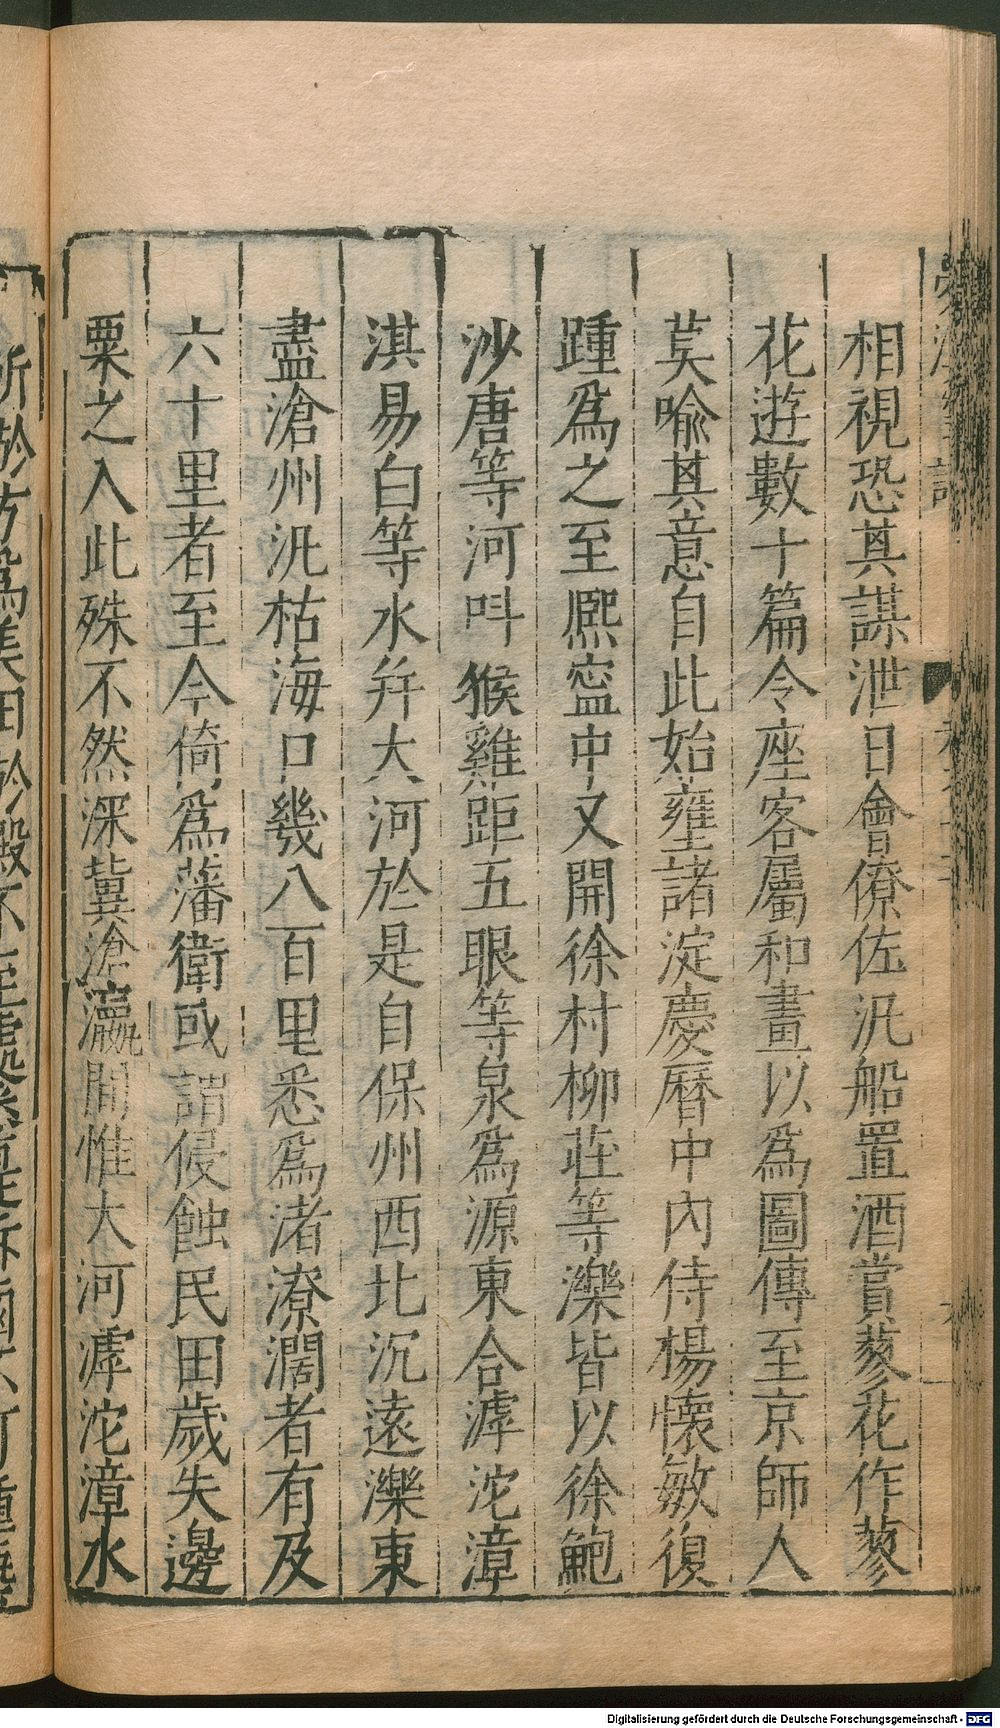 相視恐其謀泄日會僚佐汎船置酒賞蓼花作蓼
花遊數十篇令座客屬和畫以爲圖傳至京師人
莫喻其意自此始壅諸淀慶曆中內侍楊懷敏復
踵爲之至熈寍中又開徐村柳莊等濼皆以徐鮑
沙唐等河呌猴雞距五眼等泉爲源東合滹沱漳
淇易白等水幷大河於是自保州西北沉遠濼東
盡滄州汎枯海口幾八百里悉爲渚潦濶者有及
六十里者至今倚爲藩衛或謂侵蝕民田歲失邊
粟之入此殊不然深冀滄瀛間惟大河滹沱漳水
Digitalisierung gefördert durch die Deutsche Forschungsgemeinschaft - DFG